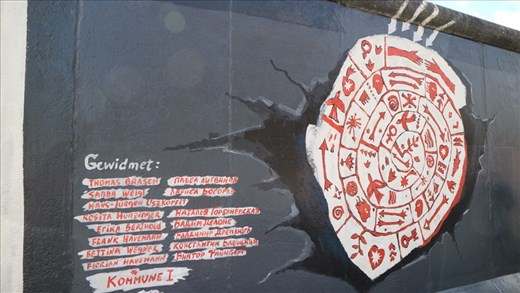 Gewidmet:
THOMAS BRASCH
SANDA WEIGL
HANS-JÜRGEN USZKOREIT
ROSITA HUNZINGER
ERIKA BERTHOLD
FRANK HAVEMANN
BETTINA WEGNER
FLORIAN HAVEMANN
ПАВЕЛ ЛИТВИНОВ
ЛАРИСА БОГОРАЗ
НАТАЛЬЯ ГОРБАНЕВСКАЯ
ВАДИМ ДЕЛОНЕ
ВЛАДИМИР ДРЕМЛЮГА
КОНСТАНТИН БАБИЦКИЙ
ВИКТОР ФАЙНБЕРГ
KOMMUNE I